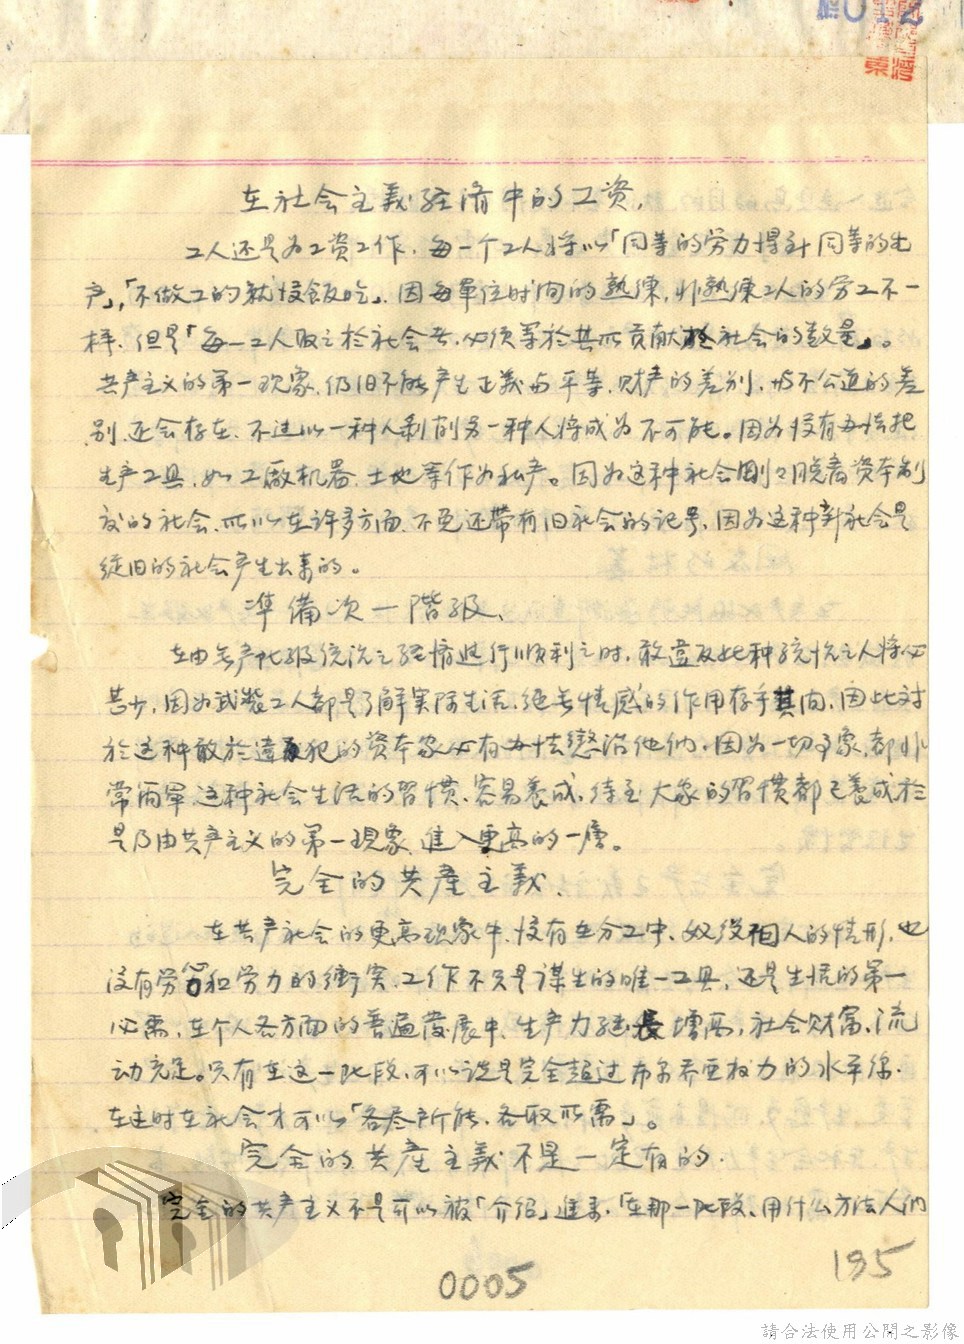 在社会主義経済中的工资.
工人还是为工资工作.每一个工人将以「同等的劳力得到同等的出
产」,「不做工的就没飯吃」.因每單位时间的熟練,非熟練工人的劳工不一
样.但是「每一工人取之於社会者,必须等於其所贡献於社会的数量」。
共产主义的第一现象,仍旧不能产生正義与平等.财产的差别,与不公道的差
别,还会存在,不过以一种人剥削另一种人将成为不可能。因为没有办法把
生产工具,如工廠机器,土地等作为私产。因为这种社会刚々脱离资本制
度的社会,所以在许多方面,不免还帶有旧社会的记号,因为这种新社会是
從旧的社会产生出来的。
準備次一階級、
在由无产阶级统治之经情进行順利之时,敢違反此种统治之人将必
甚少,因为武装工人都是了解実际生活,絕无情感的作用存乎其间,因此对
於这种敢於違犯的资本家必有办法懲治他们.因为一切現象,都非
常简單.这种社会生活的習慣,容易養成,待至大家的習慣都已養成於
是乃由共产主义的第一現象,進入更高的一層。
完全的共産主義、
在共产社会的更高现象中,没有在分工中,奴役個人的情形,也
没有劳心和劳力的衝突.工作不只是谋生的唯一工具,还是生活的第一
必需,在个人各方面的普遍发展中,生产力継長增高,社会财富,流
动充足。只有在这一阶段,可以说是完全超过布尔乔亚权力的水平線.
在这时在社会才可以「各尽所能,各取所需」。
完全的共産主義不是一定有的.
完全的共产主义不是可以被「介绍」進来.「在那一阶段,用什么方法人们
0005
195
請合法使用公開之影像